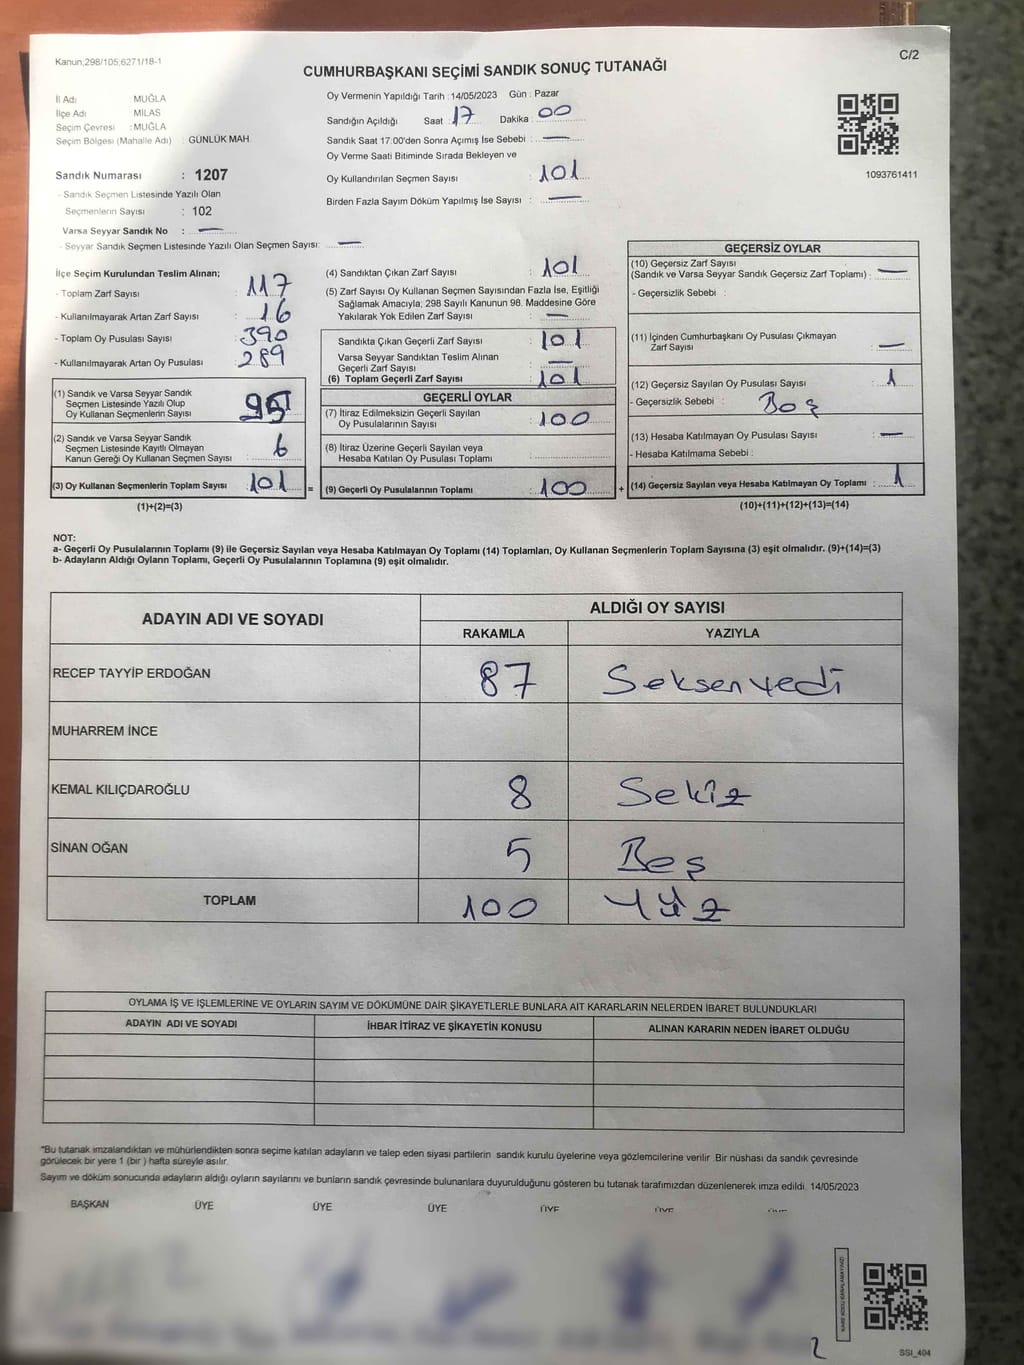 Kanun;298/105;6271/18-1
C/2
CUMHURBAŞKANI SEÇİMİ SANDIK SONUÇ TUTANAĞI
İl Adı : MUĞLA
İlçe Adı : MİLAS
Seçim Çevresi : MUĞLA
Seçim Bölgesi (Mahalle Adı) : GÜNLÜK MAH
Sandık Numarası : 1207
- Sandık Seçmen Listesinde Yazılı Olan
Seçmenlerin Sayısı : 102
Varsa Seyyar Sandık No : —
- Seyyar Sandık Seçmen Listesinde Yazılı Olan Seçmen Sayısı: —
Oy Vermenin Yapıldığı Tarih : 14/05/2023 Gün : Pazar
Sandığın Açıldığı Saat : 17 Dakika : 00
Sandık Saat 17.00'den Sonra Açımış İse Sebebi : —
Oy Verme Saati Bitiminde Sırada Bekleyen ve
Oy Kullandırılan Seçmen Sayısı : 101
Birden Fazla Sayım Döküm Yapılmış İse Sayısı : —
1093761411
İlçe Seçim Kurulundan Teslim Alınan;
- Toplam Zarf Sayısı : 117
- Kullanılmayarak Artan Zarf Sayısı : 16
- Toplam Oy Pusulası Sayısı : 390
- Kullanılmayarak Artan Oy Pusulası : 289
(1) Sandık ve Varsa Seyyar Sandık
Seçmen Listesinde Yazılı Olup
Oy Kullanan Seçmenlerin Sayısı : 95
(2) Sandık ve Varsa Seyyar Sandık
Seçmen Listesinde Kayıtlı Olmayan
Kanun Gereği Oy Kullanan Seçmen Sayısı : 6
(3) Oy Kullanan Seçmenlerin Toplam Sayısı : 101
(1)+(2)=(3)
(4) Sandıktan Çıkan Zarf Sayısı : 101
(5) Zarf Sayısı Oy Kullanan Seçmen Sayısından Fazla İse, Eşitliği
Sağlamak Amacıyla; 298 Sayılı Kanunun 98. Maddesine Göre
Yakılarak Yok Edilen Zarf Sayısı : —
Sandıkta Çıkan Geçerli Zarf Sayısı : 101
Varsa Seyyar Sandıktan Teslim Alınan
Geçerli Zarf Sayısı : —
(6) Toplam Geçerli Zarf Sayısı : 101
GEÇERLİ OYLAR
(7) İtiraz Edilmeksizin Geçerli Sayılan
Oy Pusulalarının Sayısı : 100
(8) İtiraz Üzerine Geçerli Sayılan veya
Hesaba Katılan Oy Pusulası Toplamı :
= (9) Geçerli Oy Pusulalarının Toplamı : 100 +
GEÇERSİZ OYLAR
(10) Geçersiz Zarf Sayısı
(Sandık ve Varsa Seyyar Sandık Geçersiz Zarf Toplamı) : —
- Geçersizlik Sebebi :
(11) İçinden Cumhurbaşkanı Oy Pusulası Çıkmayan
Zarf Sayısı : —
(12) Geçersiz Sayılan Oy Pusulası Sayısı : 1
- Geçersizlik Sebebi : Boş
(13) Hesaba Katılmayan Oy Pusulası Sayısı : —
- Hesaba Katılmama Sebebi :
(14) Geçersiz Sayılan veya Hesaba Katılmayan Oy Toplamı : 1
(10)+(11)+(12)+(13)=(14)
NOT:
a- Geçerli Oy Pusulalarının Toplamı (9) ile Geçersiz Sayılan veya Hesaba Katılmayan Oy Toplamı (14) Toplamları, Oy Kullanan Seçmenlerin Toplam Sayısına (3) eşit olmalıdır. (9)+(14)=(3)
b- Adayların Aldığı Oyların Toplamı, Geçerli Oy Pusulalarının Toplamına (9) eşit olmalıdır.
ADAYIN ADI VE SOYADI ALDIĞI OY SAYISI
RAKAMLA YAZIYLA
RECEP TAYYİP ERDOĞAN 87 Seksenyedi
MUHARREM İNCE
KEMAL KILIÇDAROĞLU 8 Sekiz
SİNAN OĞAN 5 Beş
TOPLAM 100 Yüz
OYLAMA İŞ VE İŞLEMLERİNE VE OYLARIN SAYIM VE DÖKÜMÜNE DAİR ŞİKAYETLERLE BUNLARA AİT KARARLARIN NELERDEN İBARET BULUNDUKLARI
ADAYIN ADI VE SOYADI İHBAR İTİRAZ VE ŞİKAYETİN KONUSU ALINAN KARARIN NEDEN İBARET OLDUĞU
*Bu tutanak imzalandıktan ve mühürlendikten sonra seçime katılan adayların ve talep eden siyasi partilerin sandık kurulu üyelerine veya gözlemcilerine verilir. Bir nüshası da sandık çevresinde
görülecek bir yere 1 (bir ) hafta süreyle asılır.
Sayım ve döküm sonucunda adayların aldığı oyların sayılarını ve bunların sandık çevresinde bulunanlara duyurulduğunu gösteren bu tutanak tarafımızdan düzenlenerek imza edildi. 14/05/2023
BAŞKAN ÜYE ÜYE ÜYE ÜYE ÜYE ÜYE
2
SSI_404